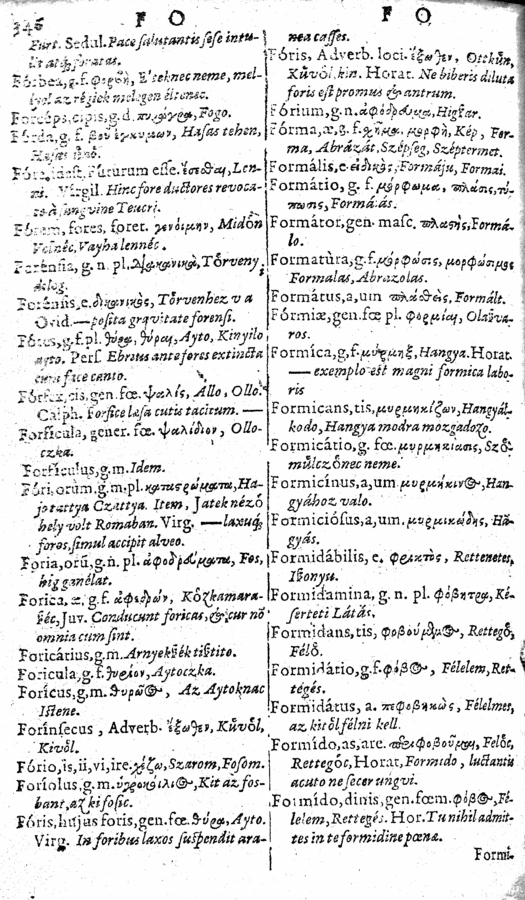 346 F O
Furt. Sedul. Pace salutantis sese intu-
lit atq́; foratas.
Fórbea, g.f. φορβὴ, E'teknec neme, mel-
lyol az régiek melegen éltenec.
Forceps, cipis, g.d. πυράγρα, Fogo.
Fórda, g.f. βοῦ ἔγκυμων, Hasas tehen,
Hasas iuhó.
Fóre, idest, Futurum esse. ἔσεσθαι, Len-
ni. Virgil. Hinc fore ductores revoca-
to à sanguine Teucri.
Fórem, fores, foret. γενοίμην, Midőn
Vólnéc, Vayha lennéc.
Forénsia, g. n. pl. δικανικὰ, Tőrveny
dolog.
Forénsis, e. δικανικὸς, Tőrvenhez v a
Ovid. — posita gravitate forensi.
Fóres, g.f. pl. θύρα, θύραι, Ayto, Kinyilo
ayto. Pers. Ebrius ante fores extincta
cum face canto.
Fórfex, cis, gen. fœ. ψαλίς, Allo, Ollo.
Calph. Forfice læsa cutis tacitum. —
Forfícula, gener. fœ. ψαλίδιον, Ollo-
czka.
Forfículus, g.m. Idem.
Fóri, orùm, g.m. pl. καταστρώματα, Ha-
jo tattya Czattya. Item, Jatek nézó
hely volt Romaban. Virg. — laxuq́;
foros, simul accipit alveo.
Foria, orũ, g.n. pl. ἀφοδρεύματα, Fos,
hig ganélat.
Forica, æ, g.f. ἀφεδρών, Kőzkamara-
széc, Juv. Conducunt foricas, & cur nõ
omnia cum sint.
Foricárius, g.m. Arnyekszék tisztito.
Foricula, g.f. θυρίον, Aytoczka.
Forícus, g.m. θυραῖος, Az Aytoknac
Istene.
Forínsecus, Adverb. ἔξωθεν, Kűuől,
Kivől.
Fório, is, ii, vi, ire. χέζω, Szarom, Fosom.
Foríolus, g.m. Kit az fos-
bant, az ki fosic.
Fóris, hujus foris, gen. fœ. θύρα, Ayto.
Virg. In foribus laxos suspendit ara-
F O
nea casses.
Fóris, Adverb. loci. ἔξωθεν, Ottkũn,
Kűuől, kin. Horat. Ne biberis diluta
foris est promus & antrum.
Fórium, g.n. ἀφόδρευμα, Higszar.
Fórma, æ, g.f. χῆμα, μορφὴ, Kép, For-
ma, Abrázát, Szépseg, Széptermet.
Formális, e. εἰδικὸς, Formáju, Formai.
Formátio, g. f. μόρφωμα, πλάσις, τύ-
πωσις, Formálás.
Formátor, gen. masc. πλαστὴς, Formá-
lo.
Formatùra, g.f. μόρφωσις, μορφώσιμος
Formalas, Abrazolas.
Formátus, a, um πλασθεὶς, Formált.
Fórmiæ, gen. fœ pl. φορμίαι, Olaszva-
ros.
Formíca, g,f. μύρμηξ, Hangya. Horat.
— exemplo est magni formica labo-
ris
Formicans, tis, μυρμηκίζων, Hangyál-
kodo, Hangya modra mozgadozo.
Formicátio, g. fœ. μυρμηκίασις, Szőr
műlczőnec neme.
Formicínus, a, um. μυρμήκινος, Han-
gyához valo.
Formiciósus, a, um. μυρμικώδης, Hã-
gyás.
Formidábilis, e. φρικτὸς, Rettenetes,
Iszonyu.
Formidamina, g. n. pl. φόβητρα, Ké-
serteti Látás.
Formidans, tis, φοβούμενος, Rettegő,
Félő.
Formidátio, g.f. φόβος, Félelem, Ret-
tegés.
Formidátus, a. πεφοβηκὼς, Félelmes,
az kitől félni kell.
Formído, as, are. περιφοβοῦμαι, Felőc,
Rettegőc, Horat, Formido, luctantis
acuto ne secer ungui.
Formído, dinis, gen. fœm. φόβος, Fé-
lelem, Rettegés. Hor. Tu nihil admit-
tes in te formidine pœnæ.
Formi-